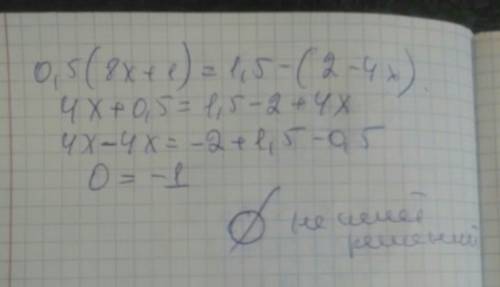 0,5(8x+1)=1,5-(2-4x).
4x+0,5=1,5-2+4x
4x-4x=-2+1,5-0,5
0=-1
∅ не имеет
решений